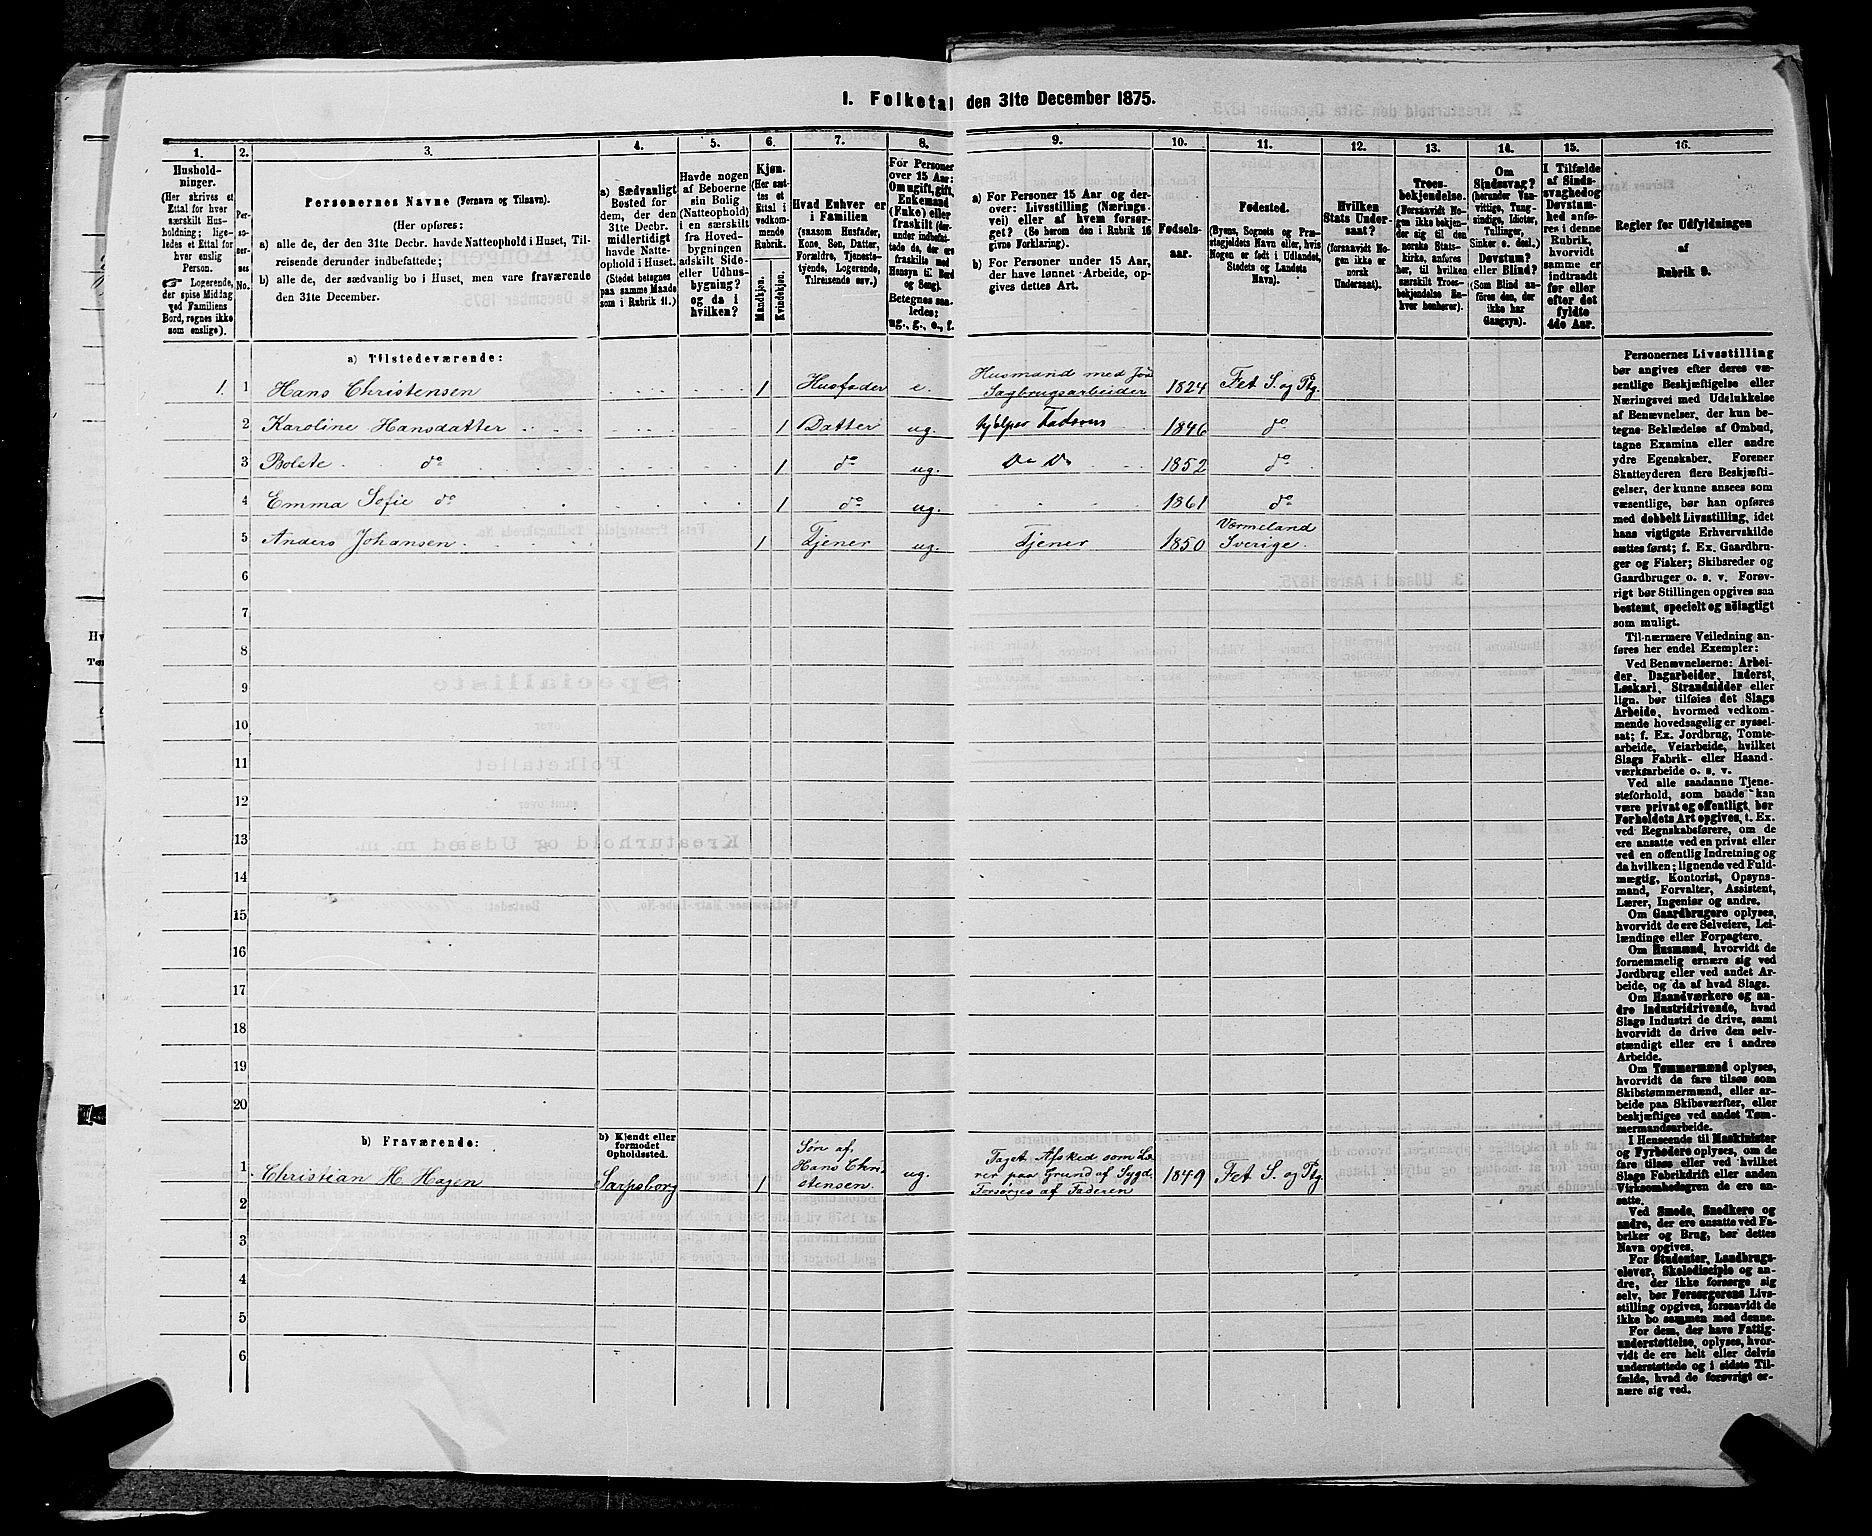 1. Folketal den 31te December 1875.
1. 2. 3. 4. 5. 6. 7. 8. 9. 10. 11. 12. 13. 14. 15. 16.
Hushold-
ninger.
(Her skrives et
Ettal for hver
særskilt Hus-
holdning; lige-
ledes et Ettal for
hver enslig
Person.
☞ Logerende,
der spise Middag
ved Familiens
Bord, regnes ikke
som enslige).
Per-
so-
ner-
nes
No.
Personernes Navne (Fornavn og Tilnavn).
(Her opføres:
a) alle de, der den 31te Decbr. havde Natteophold i Huset, Til-
reisende derunder indbefattede;
b) alle de, der sædvanlig bo i Huset, men vare fraværende
den 31te December.
a) Sædvanligt
Bosted for
dem, der den
31te Decbr.
midlertidigt
havde Natte-
ophold i Huset.
(Stedet betegnes
paa samme Maade
som i Rubrik 11.)
Havde nogen
af Beboerne
sin Bolig
(Natteophold)
i en særskilt
fra Hoved-
bygningen
adskilt Side-
eller Udhus-
bygning?
og da i
hvilken?
Kjøn.
(Her sæt-
tes et
Ettal i
vedkom-
mende
Rubrik.
Mandkjøn.
Kvindekjøn.
Hvad Enhver er
i Familien
(saasom Husfader,
Kone, Søn, Datter,
Forældre, Tjeneste-
tyende, Logerende,
Tilreisende osv.)
For Personer
over 15 Aar:
Om ugift, gift,
Enkemand
(Enke) eller
fraskilt (der-
under indbefat-
tede de, der ere
fraskilte med
Hensyn til Bord
og Seng).
Betegnes saa-
ledes:
ug., g., e., f.
a) For Personer 15 Aar og der-
over: Livsstilling (Nærings-
vei) eller af hvem forsør-
get? (Se herom den i Rubrik 16
givne Forklaring).
b) For Personer under 15 Aar,
der have lønnet Arbeide, op-
gives dettes Art.
Fødsels-
aar.
Fødested.
(Byens, Sognets og Præ-
stegjeldets Navn eller, hvis
Nogen er født i Udlandet,
Stedets og Landets
Navn).
Hvilken
Stats Under-
saat?
(forsaavidt No-
gen ikke er
norsk
Undersaat).
Troes-
bekjendelse.
(Forsaavidt No-
gen ikke bekjen-
der sig til den
norske Stats-
kirke, anføres
her, til hvilken
særskilt Troes-
bekjendelse En-
hver henhører).
Om
Sindssvag?
(herunder Van-
vittige, Tung-
sindige, Idioter,
Tullinger,
Sinker o. desl.).
Døvstum?
eller Blind?
(Som Blind an-
føres den, der
ikke har
Gangsyn).
I Tilfælde
af Sinds-
svaghed og
Døvstum-
hed anfø-
res i denne
Rubrik,
hvorvidt
samme er
indtraadt
før eller
efter det
fyldte
4de Aar.
Regler for Udfyldningen
af
Rubrik 9.
a) Tilstedeværende:
1. 1 Hans Christensen 1 Husfader e. Husmand med Jord Sagbrugsarbeider 1824 Fet S. og Ptg.
2 Karoline Hansdatter 1 Datter ug. hjelper Faderen 1846 do
3 Bolete do 1 do ug. Do Do 1852 do
4 Emma Sofie do 1 do ug. 1861 do
5 Anders Johansen 1 Tjener ug. Tjener 1850 Værmeland Sverige.
6
7
8
9
10
11
12
13
14
15
16
17
18
19
20
b) Fraværende:
b) Kjendt eller
formodet
Opholdssted.
1 Christian H. Hagen Sarpsborg 1 Søn af Hans Christensen ug. Taget Afsked som Lærer paa Grund af Sygd. Forsørges af Faderen 1849 Fet S. og Ptg.
2
3
4
5
6
Personernes Livsstilling
bør angives efter deres væ-
sentlige Beskjæftigelse eller
Næringsvei med Udelukkelse
af Benævnelser, der kun be-
tegne Beklædelse af Ombud,
tagne Examina eller andre
ydre Egenskaber. Forener
Skatteyderen flere Beskjæfti-
gelser, der kunne ansees som
væsentlige, bør han opføres
med dobbelt Livsstilling, idet
hans vigtigste Erhvervskilde
sættes først; f. Ex. Gaardbru-
ger og Fisker; Skibsreder og
Gaardbruger o. s. v. Forøv-
rigt bør Stillingen opgives saa
bestemt, specielt og nøiagtigt
som muligt.
Til nærmere Veiledning an-
føres her endel Exempler:
Ved Benævnelserne: Arbei-
der, Dagarbeider, Inderst,
Løskarl, Strandsidder eller
lign. bør tilføies det Slags
Arbeide, hvormed vedkom-
mende hovedsagelig er syssel-
sat; f. Ex. Jordbrug, Tomte-
arbeide, Veiarbeide, hvilket
Slags Fabrik- eller Haand-
værksarbeide o. s. v.
Ved alle saadanne Tjene-
steforhold, som baade kan
være privat og offentligt, bør
Forholdets Art opgives, t. Ex.
ved Regnskabsførere, om de
ere ansatte ved en privat eller
ved en offentlig Indretning og
da hvilken; lignende ved Fuld-
mægtig, Kontorist, Opsyns-
mand, Forvalter, Assistent,
Lærer, Ingeniør og andre.
Om Gaardbrugere oplyses,
hvorvidt de ere Selveiere, Lei-
lændinge eller Forpagtere.
Om Husmænd, hvorvidt de
fornemmelig ernære sig ved
Jordbrug eller ved andet Ar-
beide, og da af hvad Slags.
Om Haandværkere og an-
dre Industridrivende, hvad
Slags Industri de drive, samt
hvorvidt de drive den selv-
stændigt eller ere i andres
Arbeide.
Om Tømmermænd oplyses,
hvorvidt de fare tilsøs som
Skibstømmermænd, eller ar-
beide paa Skibsværfter, eller
beskjæftiges ved andet Tøm-
mermandsarbeide.
I Henseende til Maskinister
og Fyrbødere oplyses, om de
fare tilsøs eller ved hvilket
Slags Fabrikdrift eller anden
Virksomhedsgren de ere an-
satte.
Ved Smede, Snedkere og
andre, der ere ansatte ved Fa-
briker og Brug, bør dettes
Navn opgives.
For Studenter, Landbrugs-
elever, Skoledisciple og an-
dre, der ikke forsørge sig
selv, bør Forsørgerens Livs-
stilling opgives, forsaavidt de
ikke bo sammen med denne.
For dem, der have Fattig-
understøttelse, oplyses, hvor-
vidt de ere helt eller delvis
understøttede og i sidste Til-
fælde, hvad de forøvrigt er-
nære sig ved.